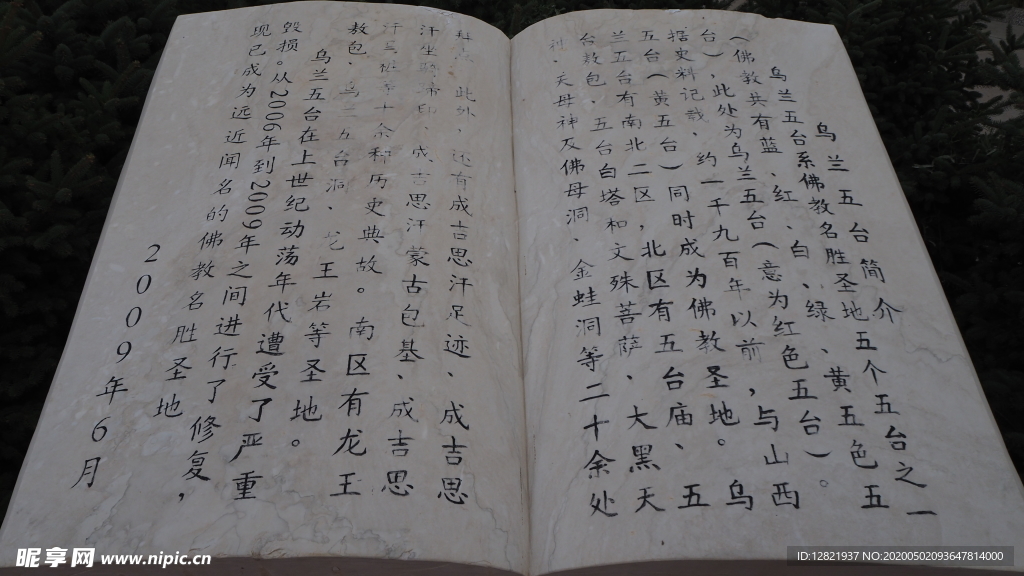 乌兰五台简介
乌兰五台系佛教名胜圣地五个五台之一
(佛教共有蓝、红、白、绿、黄五色五
台),此处为乌兰五台(意为红色五台)。
据史料记载,约一千九百年以前,与山西
五台(黄五台)同时成为佛教圣地。乌
兰五台有南北二区,北区有五台庙、五
台敖包,五台白塔和文殊菩萨、大黑天
、天母神及佛母洞、金蛙洞等二十余处
此外,还有成吉思汗足迹、成吉思
汗坐骑蹄印、成吉思汗蒙古包基、成吉思
汗等十余种历史典故。南区有龙王
敖包、乌兰五台洞、王岩等圣地。
乌兰五台在上世纪动荡年代遭受了严重
毁损。从2006年到2009年之间进行了修复,
现已成为远近闻名的佛教名胜圣地
2009年6月
昵享网 www.nipic.cn
ID:12821937 NO:20200502093647814000